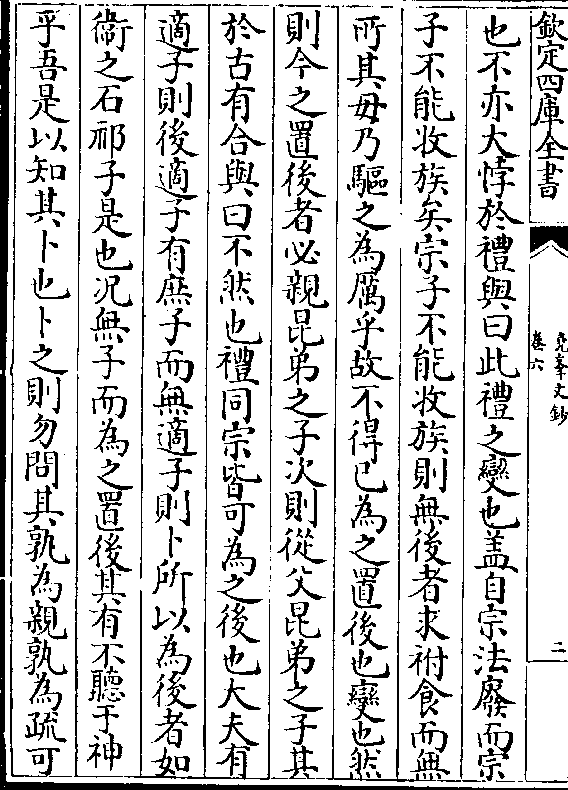 欽定四庫全書
堯峯文鈔
卷六
二
也不亦大悖於禮與曰此禮之變也盖自宗法廢而宗
子不能收族矣宗子不能收族則無後者求祔食而無
所其毋乃驅之為厲乎故不得已為之置後也變也然
則今之置後者必親昆弟之子次則從父昆弟之子其
於古有合與曰不然也禮同宗皆可為之後也大夫有
適子則後適子有庶子而無適子則卜所以為後者如
衞之石祁子是也况無子而為之置後其有不聽于神
乎吾是以知其卜也卜之則勿問其孰為親孰為疏可